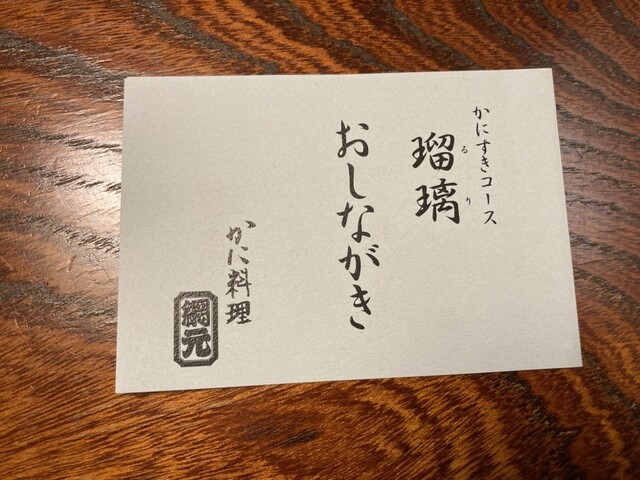 かにすきコース
瑠璃
るり
おしながき
かに料理
網元